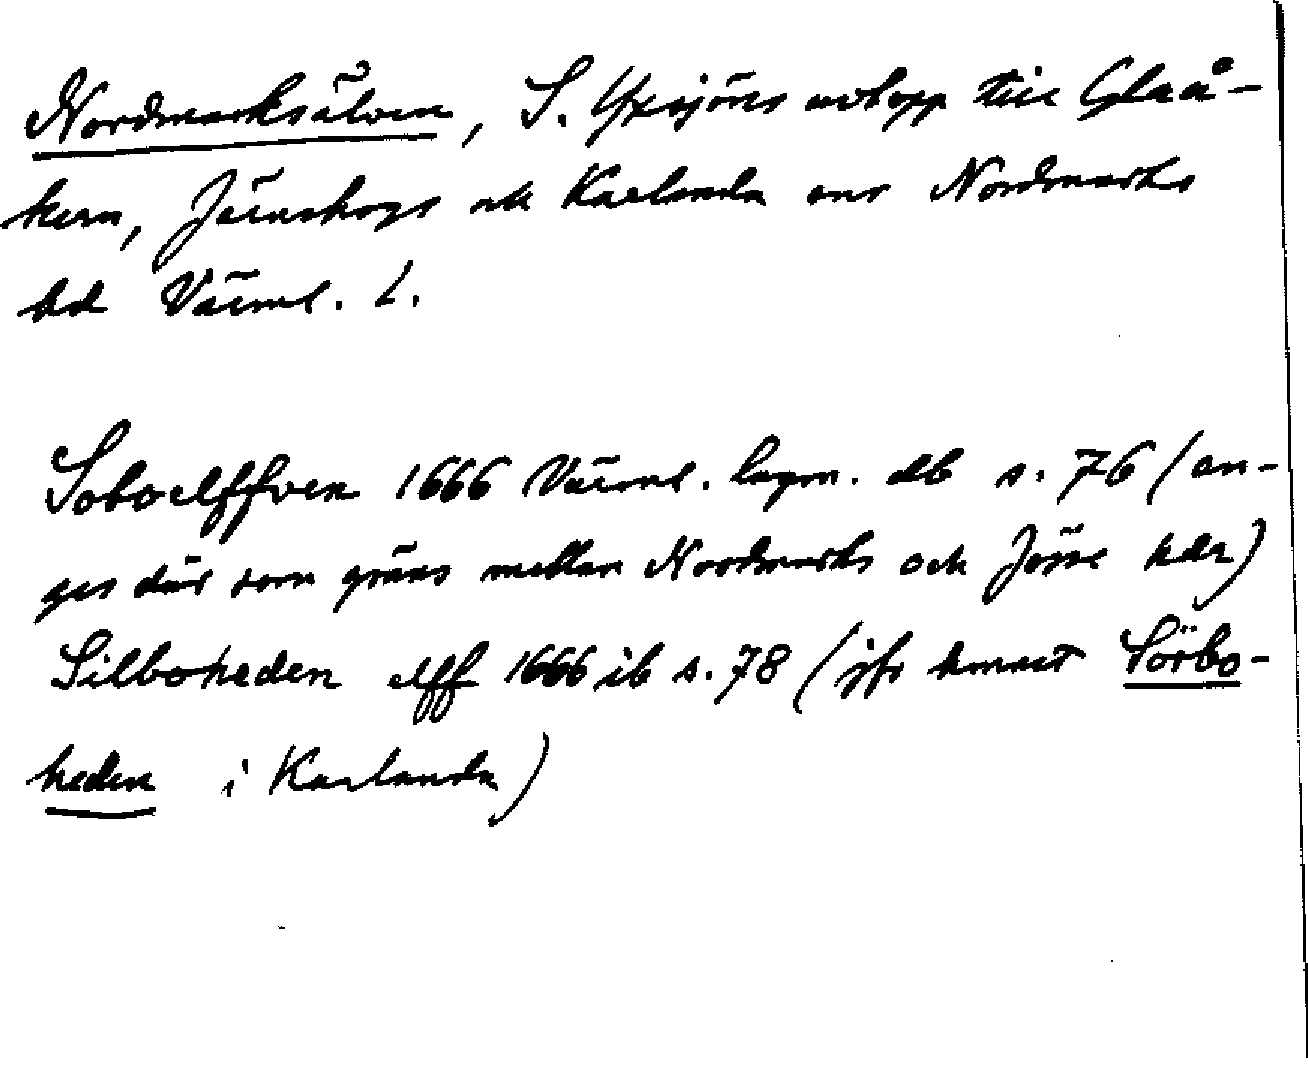 Nordmarksälven, S. Yxsjöns avlopp till Glaå-
kern, Järnskogs och Karlanda snr Nordmarks
hd Värml. l.
Soboelffven 1666 Värml. lagm. db s. 76 (an-
ges där som gräns mellan Nordmarks och Jösse hdr)
Silboheden elff 1666 ib s. 78 (jfr hmnet Sörbo-
heden i Karlanda)